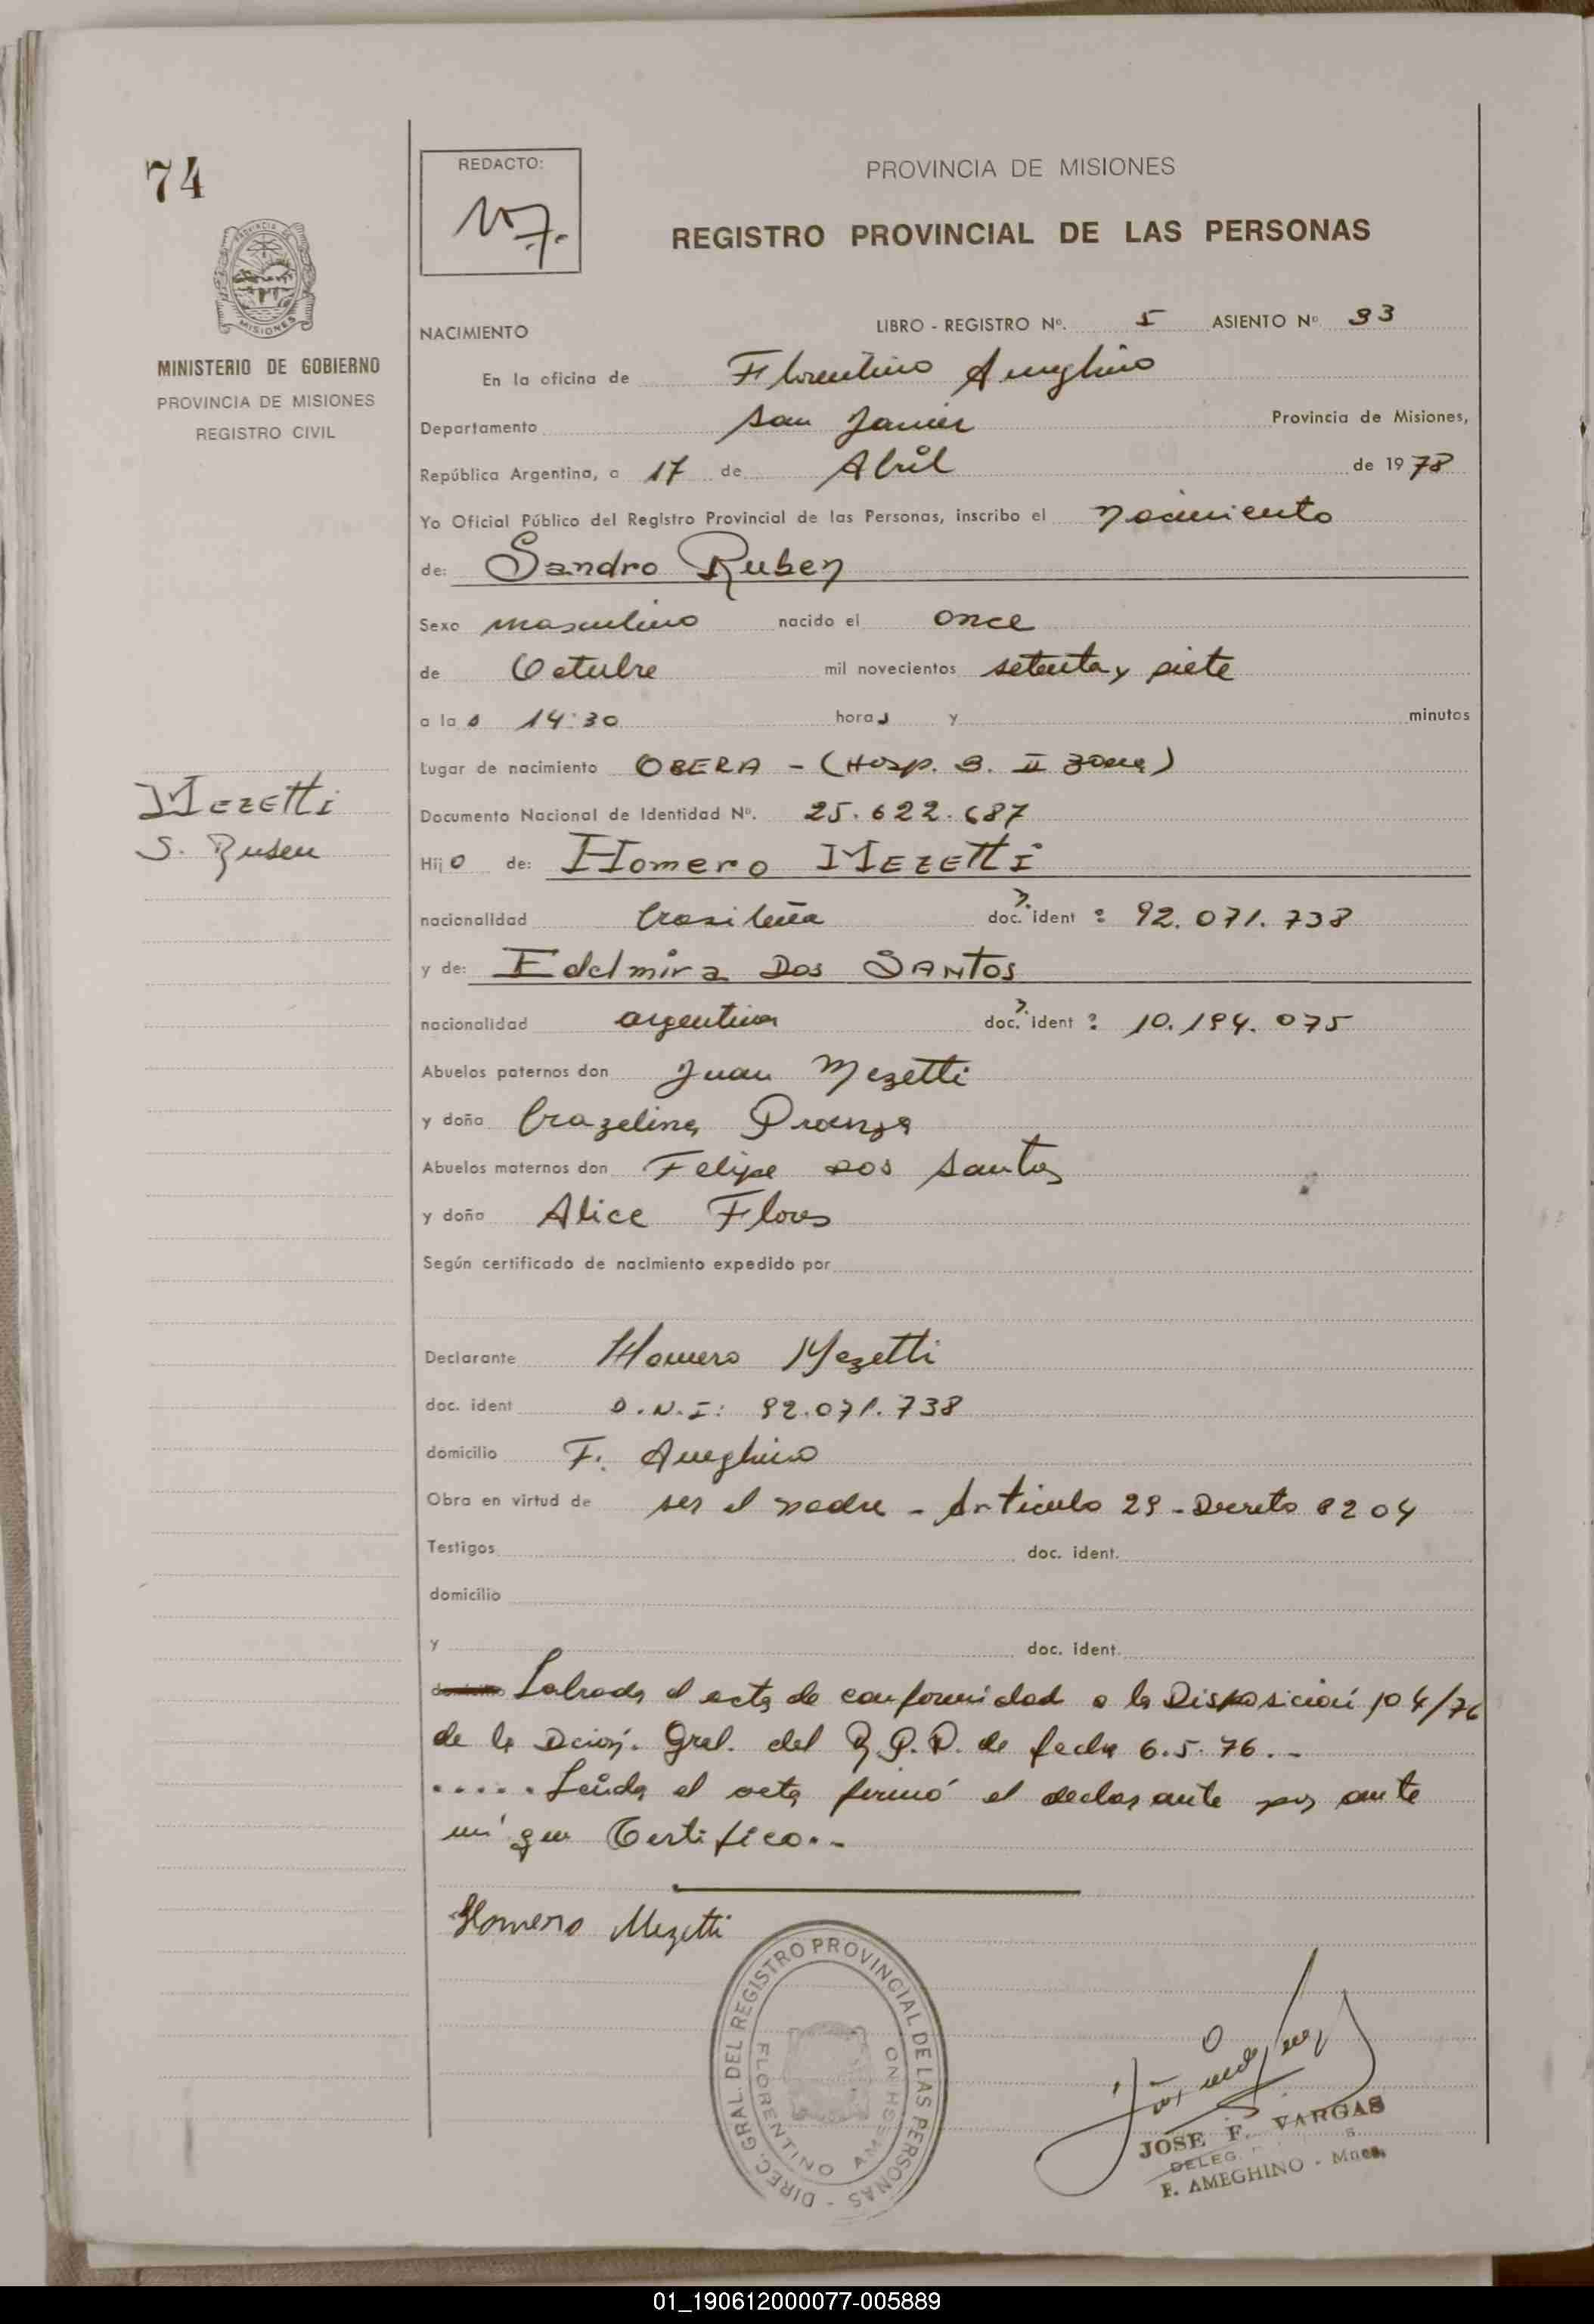 74
REDACTO:
PROVINCIA DE MISIONES
REGISTRO PROVINCIAL DE LAS PERSONAS
PROVINCIA DE
MISIONES
MINISTERIO DE GOBIERNO
PROVINCIA DE MISIONES
REGISTRO CIVIL
NACIMIENTO
LIBRO - REGISTRO Nº. 5 ASIENTO Nº 33
En la oficina de Florentino Ameghino
Departamento San Javier Provincia de Misiones,
República Argentina, a 17 de Abril de 1978
Yo Oficial Público del Registro Provincial de las Personas, inscribo el nacimiento
de: Sandro Ruben
Sexo masculino nacido el once
de Octubre mil novecientos setenta y siete
a las 14:30 horas y minutos
Lugar de nacimiento OBERA - (Hosp. B. II zona)
Documento Nacional de Identidad Nº. 25.622.687
Mezetti
S. Ruben
Hijo de: Homero MEZETTi
nacionalidad brasileña doc. ident : 92.071.738
y de: Edelmira Dos SANTOS
nacionalidad argentina doc. ident : 10.194.075
Abuelos paternos don Juan Mezetti
y doña Brazelina
Abuelos maternos don Felipe dos Santos
y doña Alice Flores
Según certificado de nacimiento expedido por
Declarante Homero Mezetti
doc. ident D.N.I: 92.071.738
domicilio F. Ameghino
Obra en virtud de ser el padre - Articulo 29 - Decreto 8204
Testigos doc. ident.
domicilio
y doc. ident.
Labrada el acta de conformidad a la Disposición 104/76
de la Dción. Gral. del R.P.P. de fecha 6.5.76.-
..... Leida el acta firmó el declarante por ante
mí que Certifico.-
Homero Mezetti
DIREC. GRAL. DEL REGISTRO PROVINCIAL DE LAS PERSONAS -
FLORENTINO AMEGHINO
JOSE F. VARGAS
F. AMEGHINO - Mnes.
01_190612000077-005889